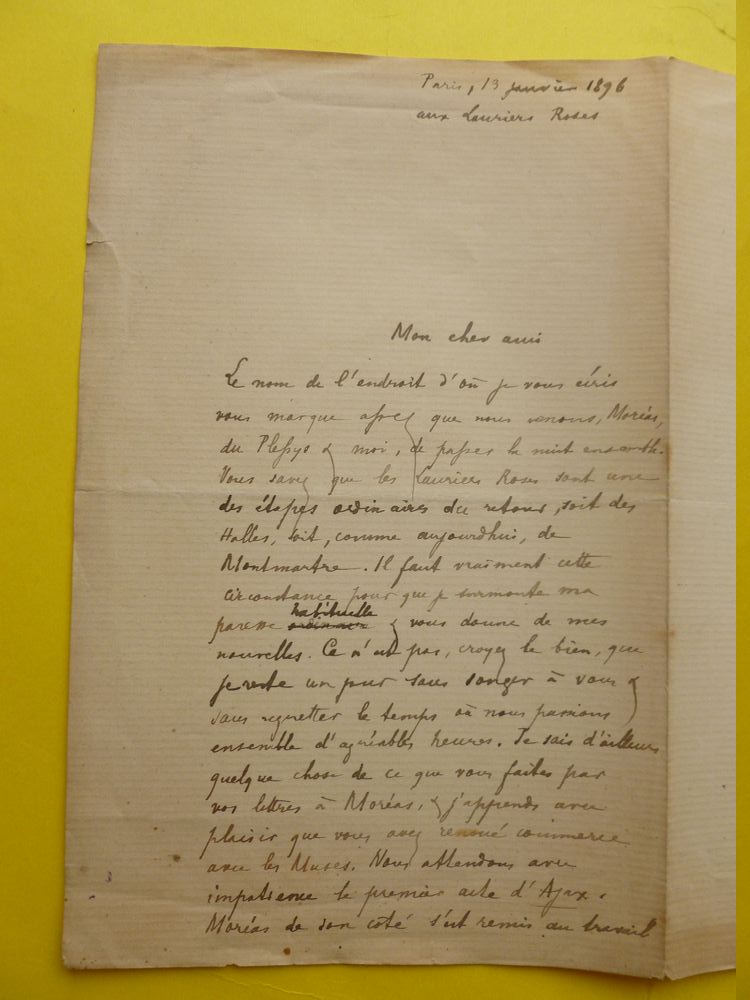 Paris, 13 janvier 1896
aux Lauriers Roses
Mon cher ami
Le nom de l'endroit d'où je vous écris
vous marque assez que nous venons, Moréas,
du Plessys & moi, de passer la nuit ensemble.
Vous savez que les Lauriers Roses sont une
des étapes ordinaires du retour, soit des
Halles, soit, comme aujourdhui, de
Montmartre. Il faut vraiment cette
circonstance pour que je surmonte ma
paresse ordinaire habituelle & vous donne de mes
nouvelles. Ce n'est pas, croyez le bien, que
je reste un jour sans songer à vous &
sans regretter le temps où nous passions
ensemble d'agréables heures. Je sais d'ailleurs
quelque chose de ce que vous faites par
vos lettres à Moréas, & j'apprends avec
plaisir que vous avez renoué commerce
avec les Muses. Nous attendons avec
impatience le premier acte d'Ajax.
Moréas de son coté s'est remis au travail